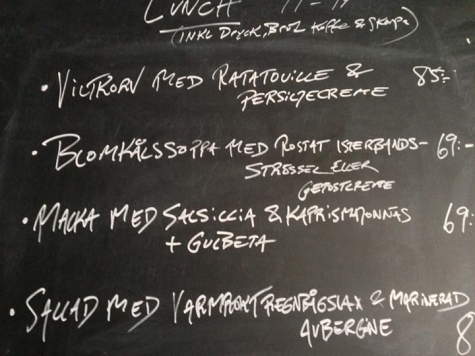 LUNCH 11-14
(INKL DRYCK, BRÖD, KAFFE &
• VILTKORV MED RATATOUILLE & 85:-
PERSILJECREME
• BLOMKÅLSSOPPA MED ROSTAT ISTERBANDS- 69:-
STRÖSSEL ELLER
GETOSTCREME
• MACKA MED SALSICCIA & KAPRISMAJONNÄS 69:
+ GULBETA
• SALLAD MED VARMRÖKT REGNBÅGSLAX & MARINERAD
AUBERGINE 8